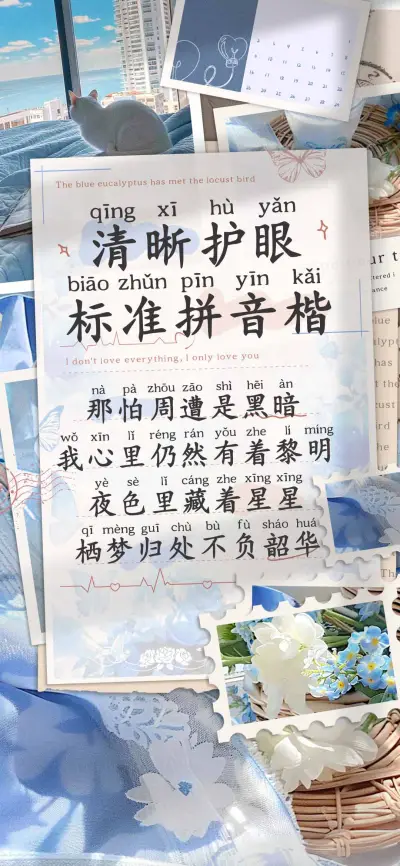 The blue eucalyptus has met the locust bird
qīng xī hù yǎn
清晰护眼
biāo zhǔn pīn yīn kǎi
标准拼音楷
I don't love everything, I only love you
nà pà zhōu zāo shì hēi àn
那怕周遭是黑暗
wǒ xīn lǐ réng rán yǒu zhe lí míng
我心里仍然有着黎明
yè sè lǐ cáng zhe xīng xīng
夜色里藏着星星
qī mèng guī chù bù fù sháo huá
栖梦归处不负韶华